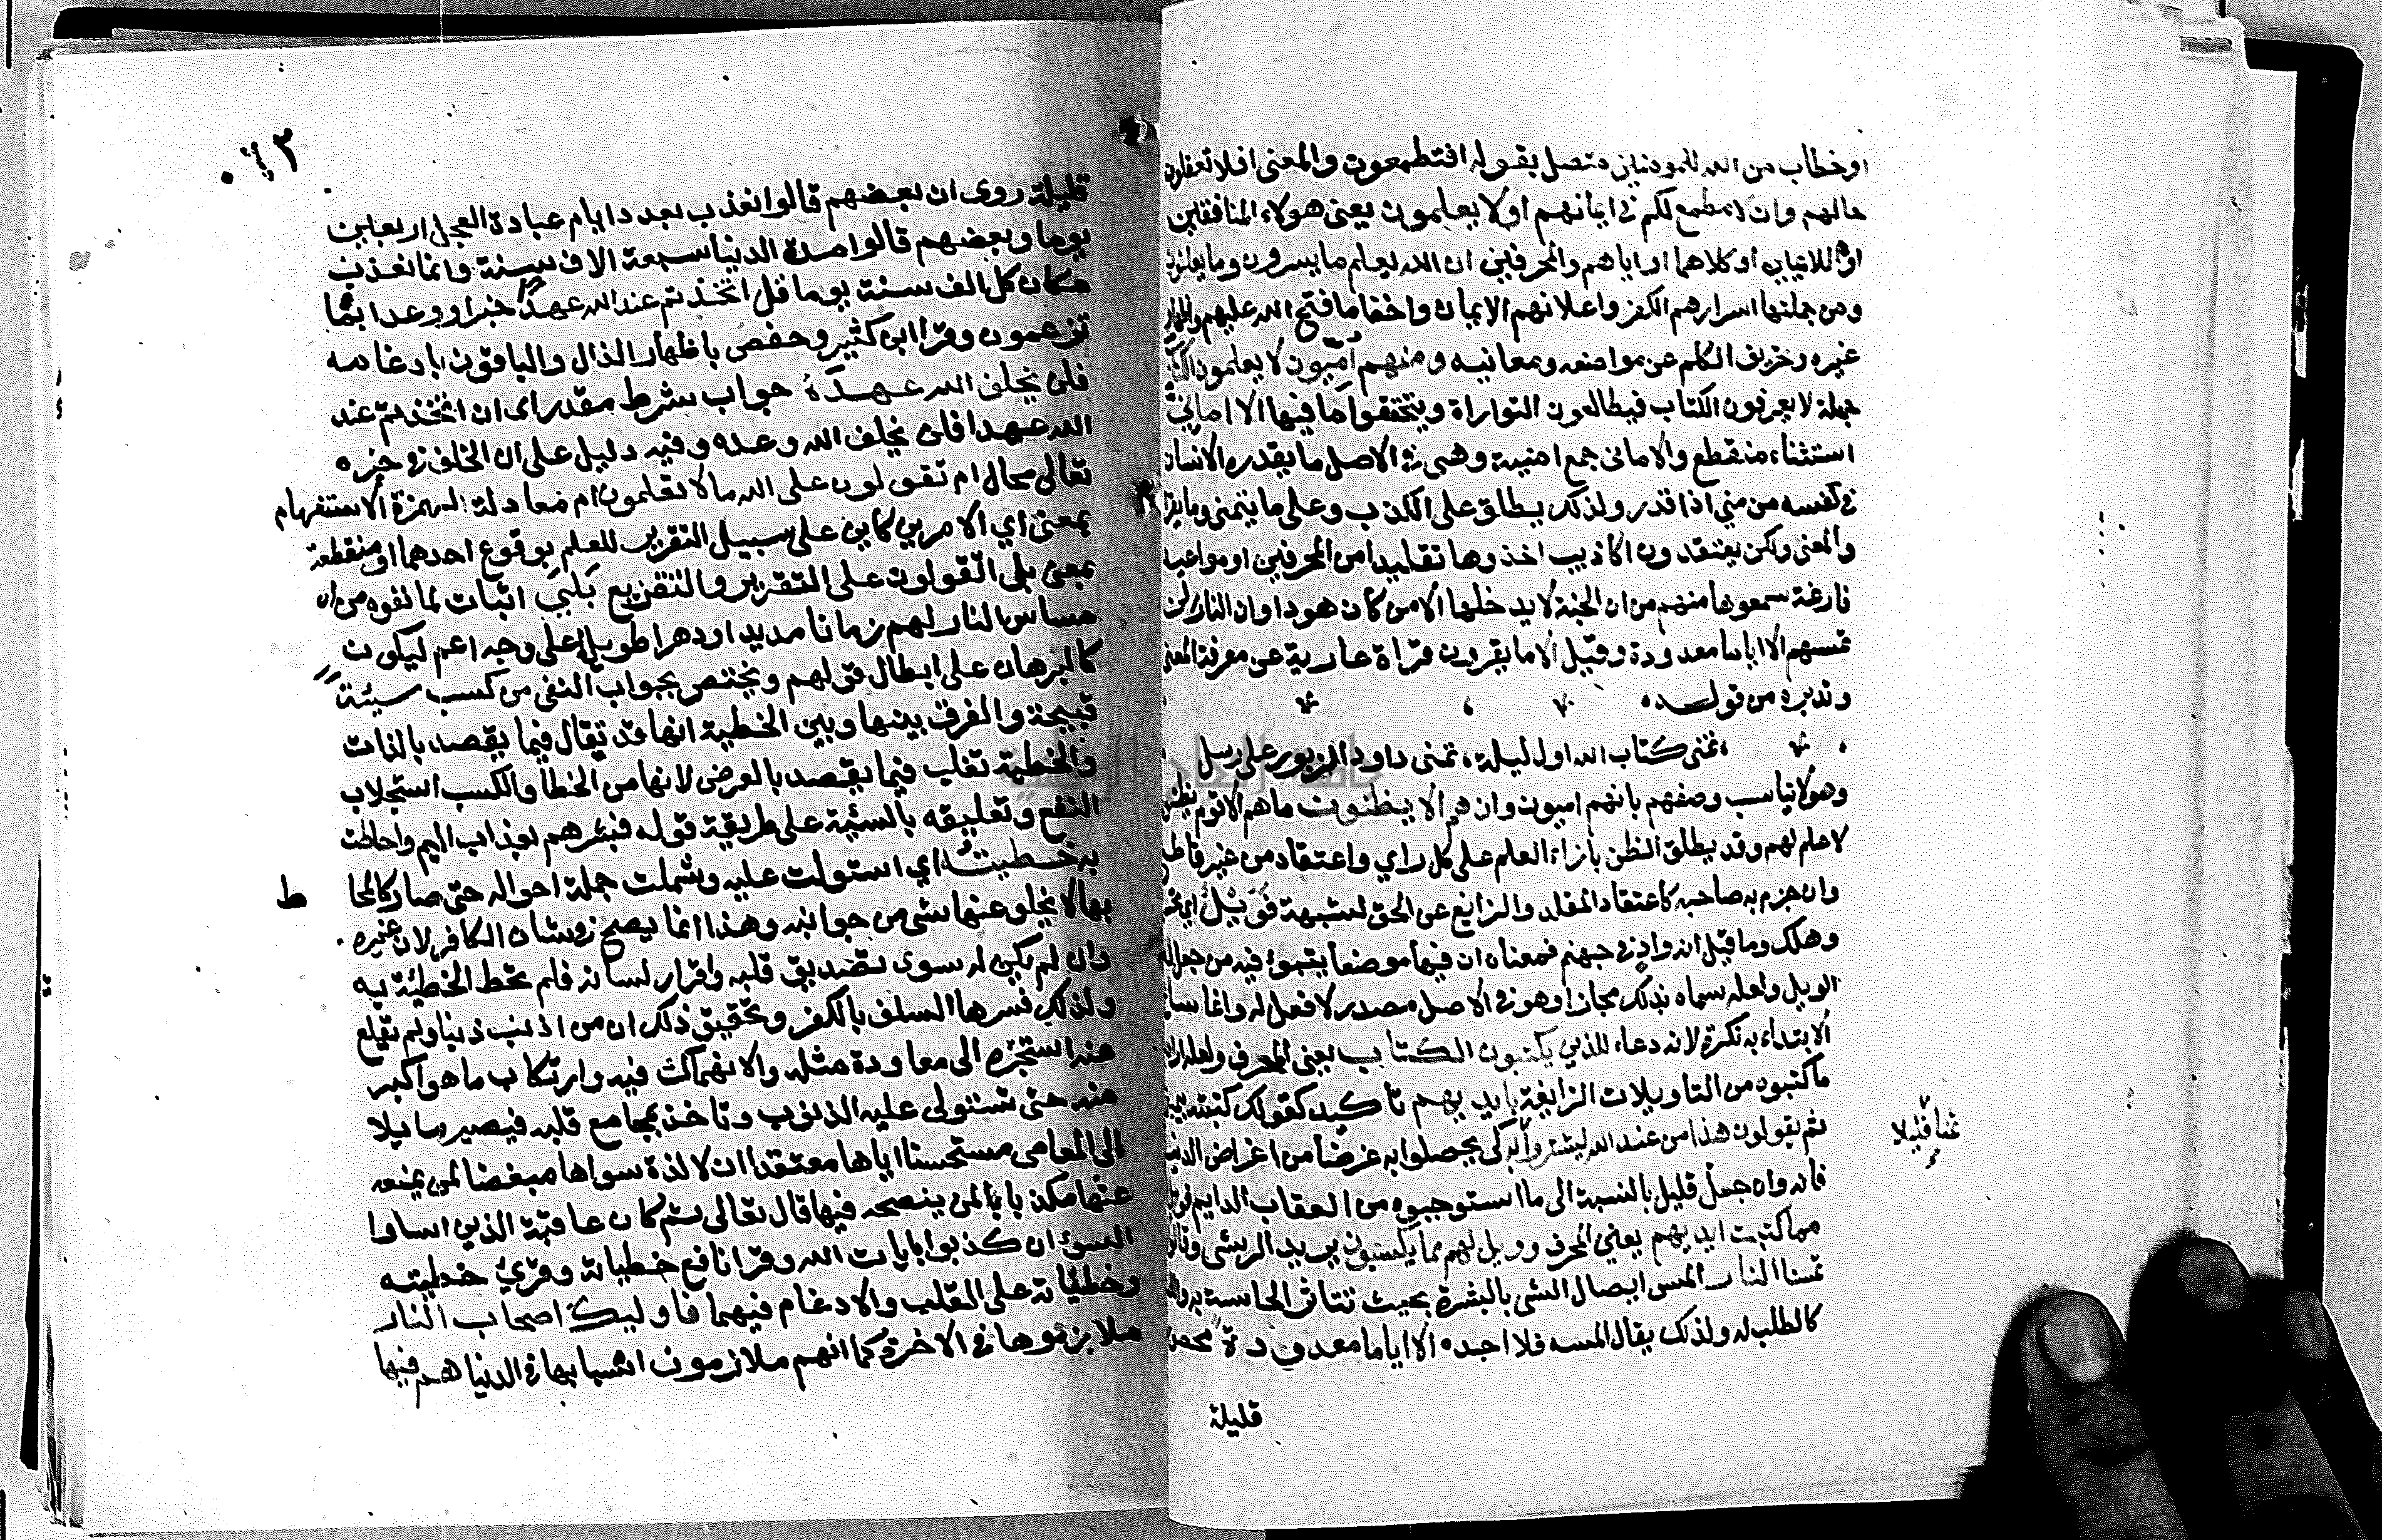 او خطاب من الله للمومنين متصل بقوله افتطمعون والمعنى افلا تعقلون
حالهم وان لا مطمع لكم في ايمانهم اولا يعلمون يعنى هولاء المنافقين
او اللائمين او كلاهما او اياهم والمحرفين ان الله يعلم ما يسرون وما يعلنون
ومن جملتها اسرارهم الكفر واعلانهم الايمان واخفا ما فتح الله عليهم واظهار
غيره وتحريف الكلم عن مواضعه ومعانيه ومنهم اميون لا يعلمون الكتب
جهلة لا يعرفون الكتاب فيطالعون التوراة ويتحققوا ما فيها الا امانى
استثناء منقطع والامانى جمع امنية وهى في الاصل ما يقدره الانسان
في نفسه من منى اذا قدر ولذلك يطلق على الكذب وعلى ما يتمنى وما يقرا
والمعنى ولكن يعتقدون اكاذيب اخذوها تقليدا من المحرفين او مواعيد
فارغة سمعوها منهم من ان الجنة لا يدخلها الا من كان هودا وان النار لن
تمسهم الا اياما معدودة وقيل الا ما يقرون قراة عارية عن معرفة المعنى
وتدبره من قوله
تمنى كتاب الله اول ليلة تمنى داود الزبور على رسل
وهو لا يناسب وصفهم بانهم اميون وان هم الا يظنون ما هم الا قوم يظنون
لا علم لهم وقد يطلق الظن بازاء العلم على كل راي واعتقاد من غير قاطع
وان جزم به صاحبه كاعتقاد المقلد والزايغ عن الحق لشبهة فويل اي تحسر
وهلك وما قيل انه واد في جهنم فمعناه ان فيها موضعا يتبوء فيه من جعل له
الويل ولعله سماه بذلك مجازا وهو في الاصل مصدر لا فعل له وانما ساغ
الابتداء به نكرة لانه دعاء للذين يكتبون الكتاب يعنى المحرف ولعله اراد
ما كتبوه من التاويلات الزايغة بايديهم تاكيد كقولك كتبته بيمينى
ثم يقولون هذا من عند الله ليشتروا به كى يحصلوا به عرضا من اغراض الدنيا
ثمنا قليلا
فانه وان جعل قليل بالنسبة الى ما استوجبوه من العقاب الدايم فويل
مما كتبت ايديهم يعنى المحرف وويل لهم مما يكسبون يريد الرشى وقالوا
تمسنا النار المس ايصال الشى بالبشرة بحيث تتاثر الحاسة به واللمس
كالطلب له ولذلك يقال المسه فلا اجده الا اياما معدودة محصورة
قليلة
قليلة روى ان بعضهم قالوا نعذب بعدد ايام عبادة العجل اربعين
يوما وبعضهم قالوا مدة الدنيا سبعة الاف سنة وانما نعذب
مكان كل الف سنة يوما قل اتخذتم عند الله عهدا خبرا ووعدا بما
تزعمون وقرا ابن كثير وحفص باظهار الذال والباقون بادغامه
فلن يخلف الله عهده جواب شرط مقدر اى ان اتخذتم عند
الله عهدا فلن يخلف الله وعده وفيه دليل على ان الخلف في خبره
تعالى محال ام تقولون على الله ما لا تعلمون ام معادلة الهمزة الاستفهام
بمعنى اي الامرين كاين على سبيل التقرير للعلم بوقوع احدهما او منقطعة
بمعنى بلى اتقولون على التقرير والتقريع بلى اثبات لما نفوه من ان
مساس النار لهم زمانا مديدا ودهرا طويلا على وجه اعم ليكون
كالبرهان على ابطال قولهم ويختص بجواب النفى من كسب سيئة
قبيحة والفرق بينها وبين الخطية انها قد تقال فيما يقصد بالذات
والخطية تغلب فيما يقصد بالعرض لانها من الخطا والكسب استجلاب
النفع وتعليقه بالسئية على طريقة قوله فبشرهم بعذاب اليم واحاطت
به خطيئته اي استولت عليه وشملت جملة احواله حتى صار كالمحا
ط
بها لا يخلو عنها شى من جوانبه وهذا انما يصح في شان الكافر لان غيره
وان لم يكن له سوى تصديق قلبه واقرار لسانه فلم تحط الخطيئة به
ولذلك فسرها السلف بالكفر وتحقيق ذلك ان من اذنب ذنبا ولم يقلع
عنه استجره الى معاودة مثله والانهماك فيه وارتكاب ما هو اكبر
منه حتى تستولى عليه الذنوب وتاخذ بمجامع قلبه فيصير مايلا
الى المعاصى مستحسنا اياها معتقدا ان لا لذة سواها مبغضا لمن يمنعه
عنها مكذبا لمن ينصحه فيها قال تعالى ثم كان عاقبة الذين اساوا
السوئ ان كذبوا بايات الله وقرا نافع خطياته وقرئ خطيته
وخطياته على القلب والادغام فيهما فاوليك اصحاب النار
ملازموها في الاخرة كما انهم ملازمون اسبابها في الدنيا هم فيها